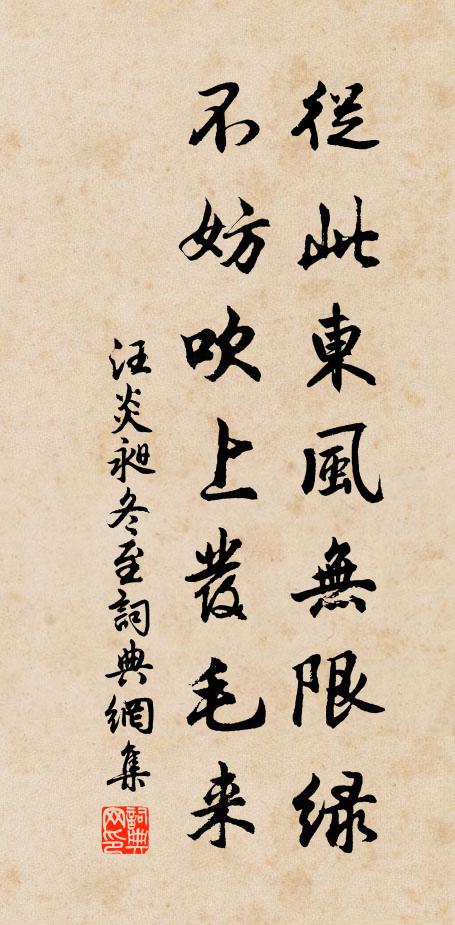 從此東風無限緑
不妨吹上發毛来
汪炎昶冬至詞典網集
詞典网印